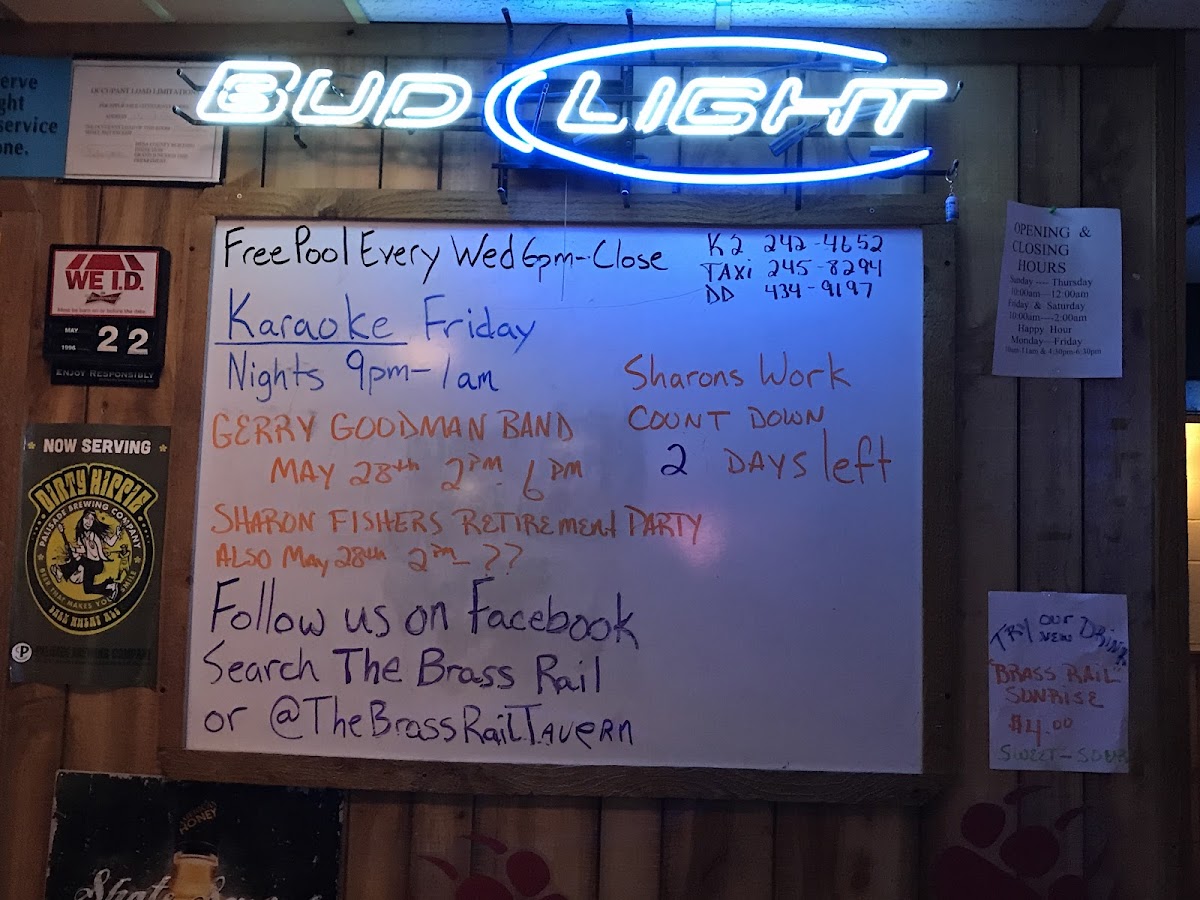 BUD LIGHT
erve
ght
service
one.
OCCUPANT LOAD LIMITATION
WE I.D.
MAY
1996
22
ENJOY RESPONSIBLY
NOW SERVING
DIRTY HIPPIE
PALISADE BREWING COMPANY
BEER THAT MAKES YOU SMILE
DARK WHEAT ALE
PALISADE BREWING COMPANY
Free Pool Every Wed 6pm-Close
K2 242-4652
TAXi 245-8294
DD 434-9197
Karaoke Friday
Nights 9pm-1am
Sharons Work
COUNT DOWN
2 DAYS left
GERRY GOODMAN BAND
MAY 28th 2PM - 6PM
SHARON FISHERS RETIREMENT PARTY
ALSO MAY 28th 2PM - ??
Follow us on Facebook
Search The Brass Rail
or @TheBrassRailTavern
OPENING &
CLOSING
HOURS
Sunday --- Thursday
10:00am---12:00am
Friday & Saturday
10:00am----2:00am
Happy Hour
Monday--Friday
10am-11am & 4:30pm-6:30pm
TRY OUR
NEW DRINK
"BRASS RAIL"
SUNRISE
$4.00
SWEET-SOUR
HONEY